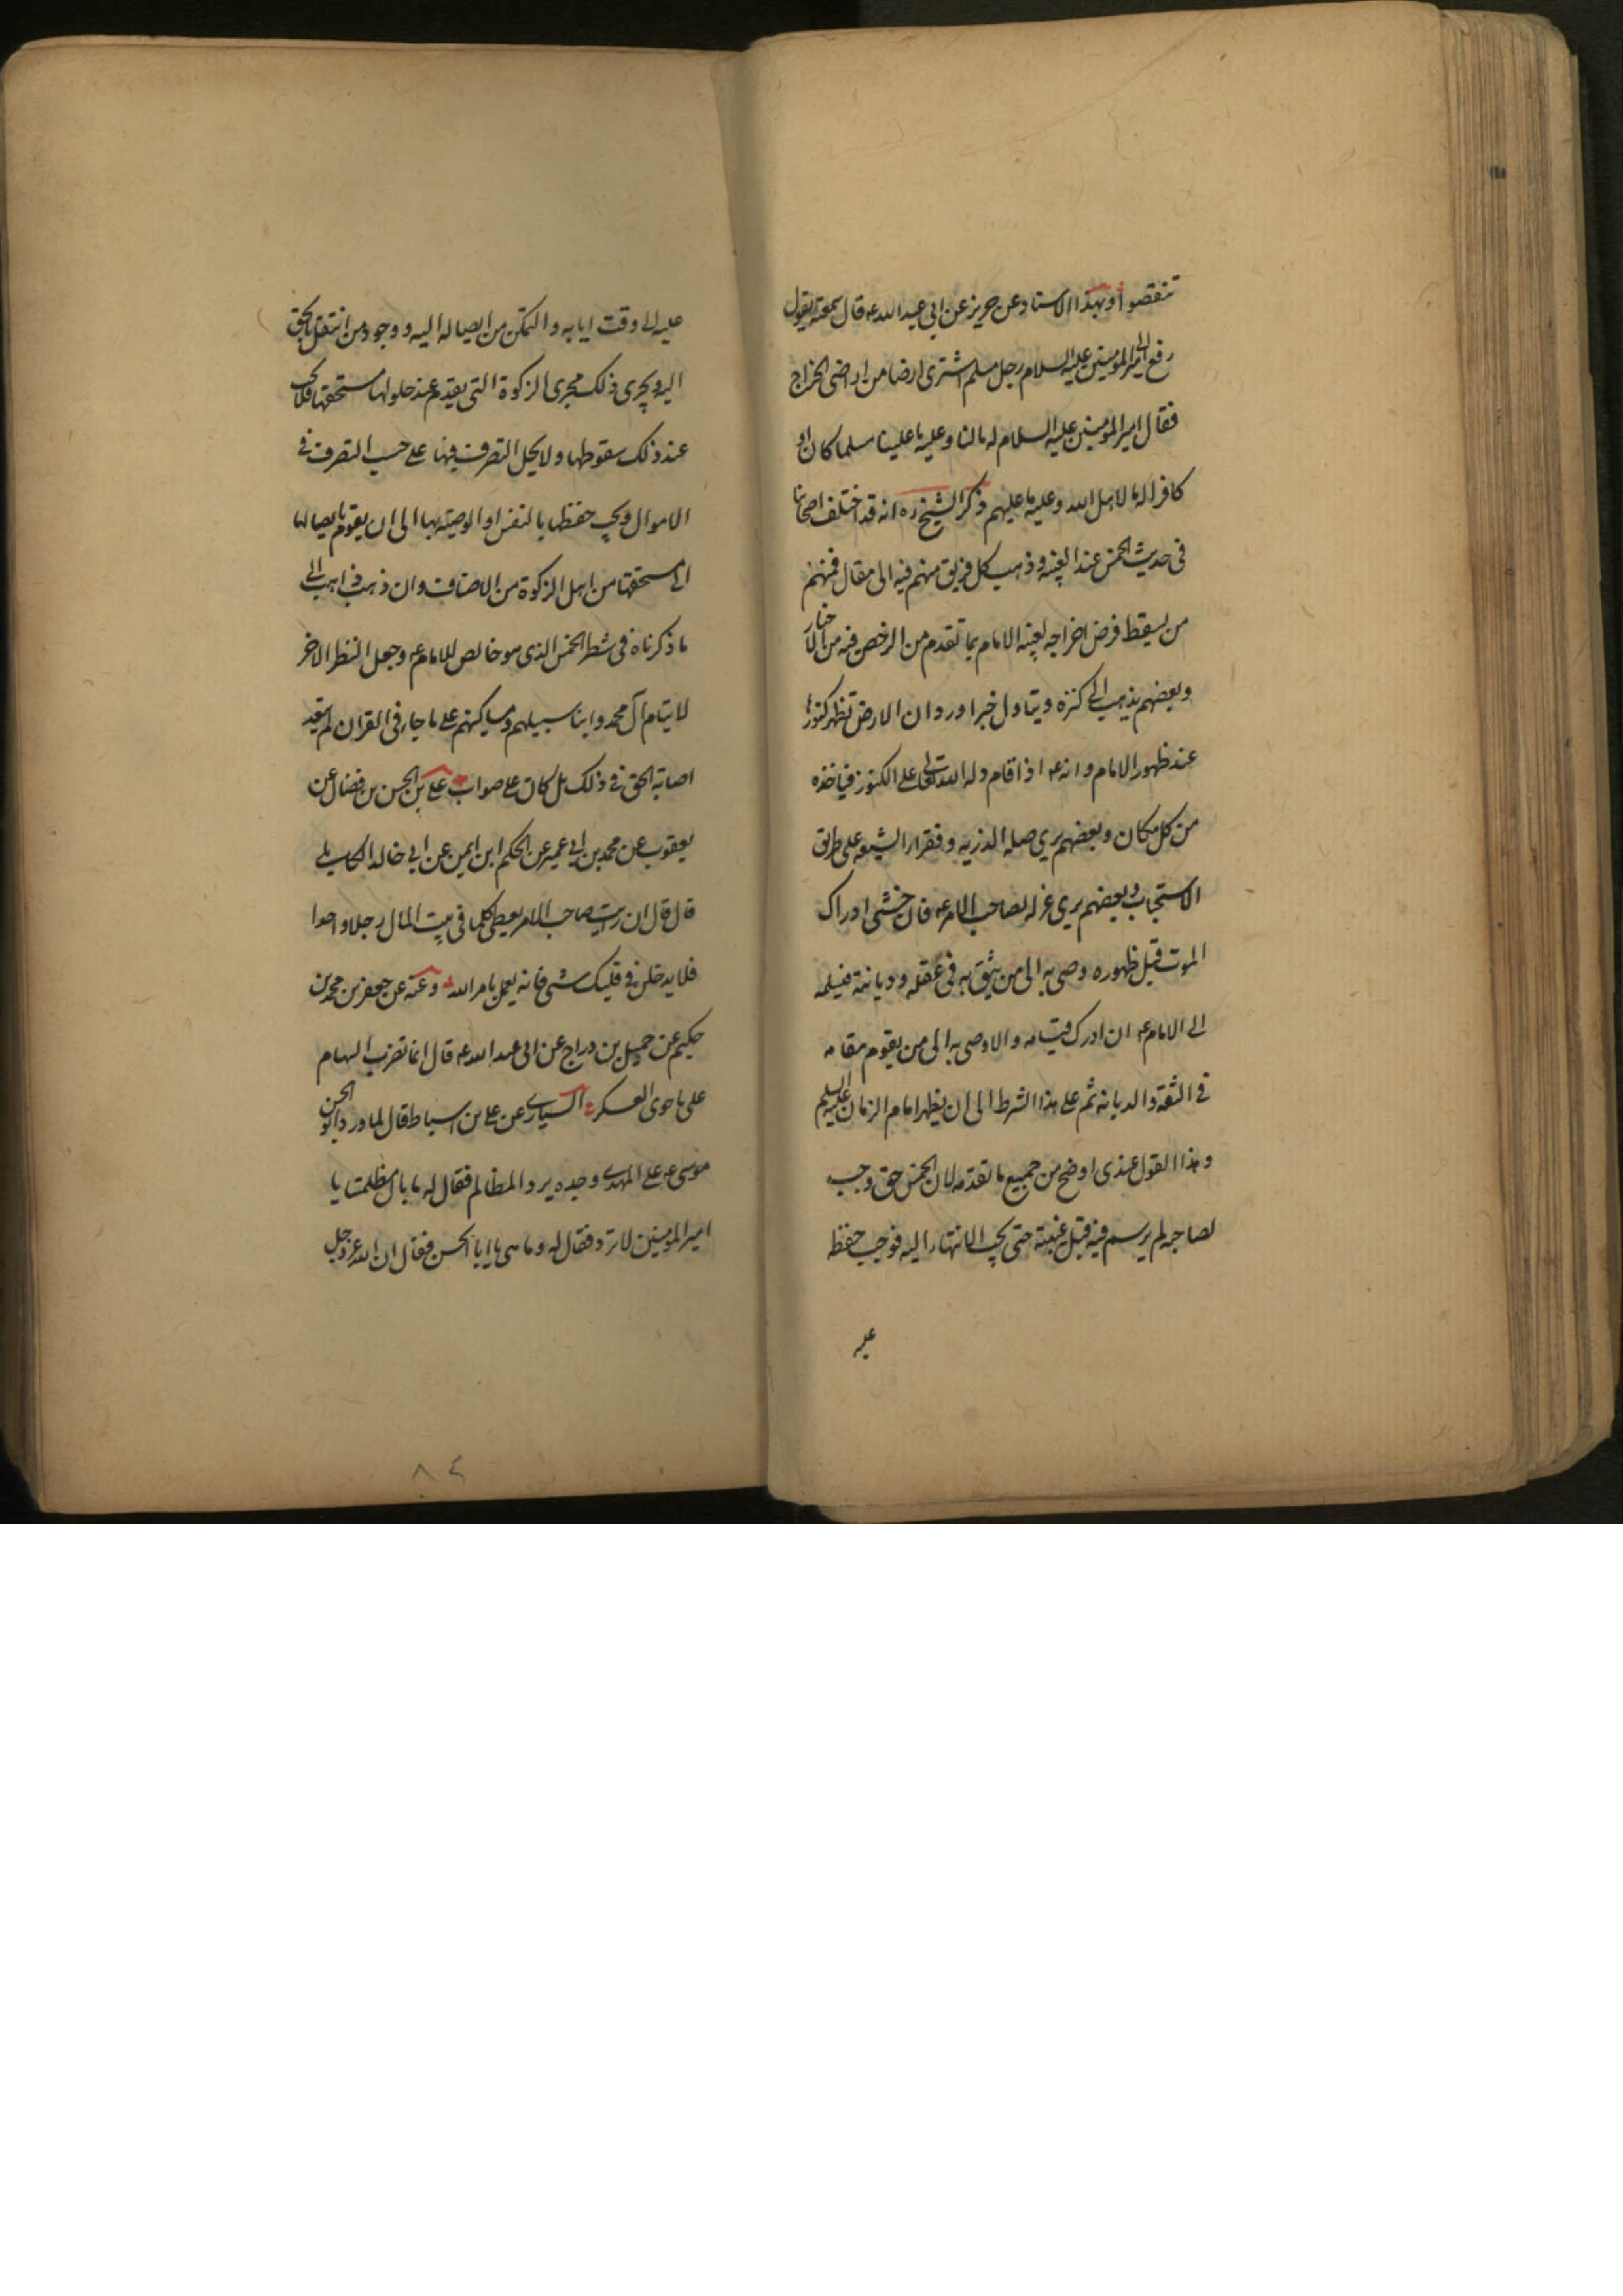 تنقصوا وبهذا الاسناد عن حريز عن ابي عبد الله عه قال سمعته يقول
رفع الى امير المومنين عليه السلام رجل مسلم اشترى ارضا من اراضى الخراج
فقال امير المومنين عليه السلام له مالنا وعليه ما علينا مسلما كان او
كافرا له ما لاهل الله وعليه ما عليهم ذكر الشيخ ره انه قد اختلف اصحابنا
فى حديث الخمس عند الغيبه وذهب كل فريق منهم فيه الى مقال فمنهم
من يسقط فرض اخراجه لغيبه الامام بما تقدم من الرخص فيه من الاخبار
وبعضهم يذهب الى كنزه ويتاول خبرا ورد ان الارض تظهر كنوزها
عند ظهور الامام وانه عه اذا قام دله الله تعالى على الكنوز فياخذه
من كل مكان وبعضهم يرى صله الذريه وفقراء الشيعه على طريق
الاستحباب وبعضهم يرى عزله لصاحب الامر عه فان خشى ادراك
الموت قبل ظهوره وصى به الى من يثق به فى عقله وديانته فيسلمه
الى الامام عه ان ادرك قيامه والا وصى به الى من يقوم مقامه
فى الثقه والديانه ثم على هذا الشرط الى ان يظهر امام الزمان عليه السلم
وهذا القول عندى اوضح من جميع ما تقدمه لان الخمس حق وجب
لصاحبه لم يرسم فيه قبل غيبته حتى يجب الانتهاء اليه فوجب حفظه
عليه
عليه الى وقت ايابه والتمكن من ايصاله اليه ووجود من انتقل بالحق
اليه ويجرى ذلك مجرى الزكوة التى يقدم عند حلولها مستحقها فلا يجب
عند ذلك سقوطها ولا يحل التصرف فيها على حسب التصرف فى
الاموال ويجب حفظها بالنفس او الوصيه بها الى ان يقوم بايصالها
الى مستحقها من اهل الزكوة من الاصناف وان ذهب ذاهب الى
ما ذكرناه فى شطر الخمس الذى هو خالص للامام عه وجعل الشطر الاخر
لايتام آل محمد وابنا سبيلهم ومساكينهم على ما جاء فى القران لم يبعد
اصابة الحق فى ذلك بل كان على صواب على بن الحسن بن فضال عن
يعقوب عن محمد بن ابى عمير عن الحكم ابن ايمن عن ابى خالد الكابلى
قال قال ان رايت صاحب الامر يعطى كلما فى بيت المال رجلا واحدا
فلا يدخلن فى قلبك شى فانه يعمل بامر الله وعنه عن جعفر بن محمد بن
حكيم عن جميل بن دراج عن ابى عبد الله عه قال انما تضرب السهام
على ما حوى العسكر السيارى عن على بن اسباط قال لما ورد ابو الحسن
موسى عه على المهدى وجده يرد المظالم فقال له ما بال مظلمتنا يا
امير المومنين لا ترد فقال له وما هى يا ابا الحسن فقال ان الله عز وجل
۸۴